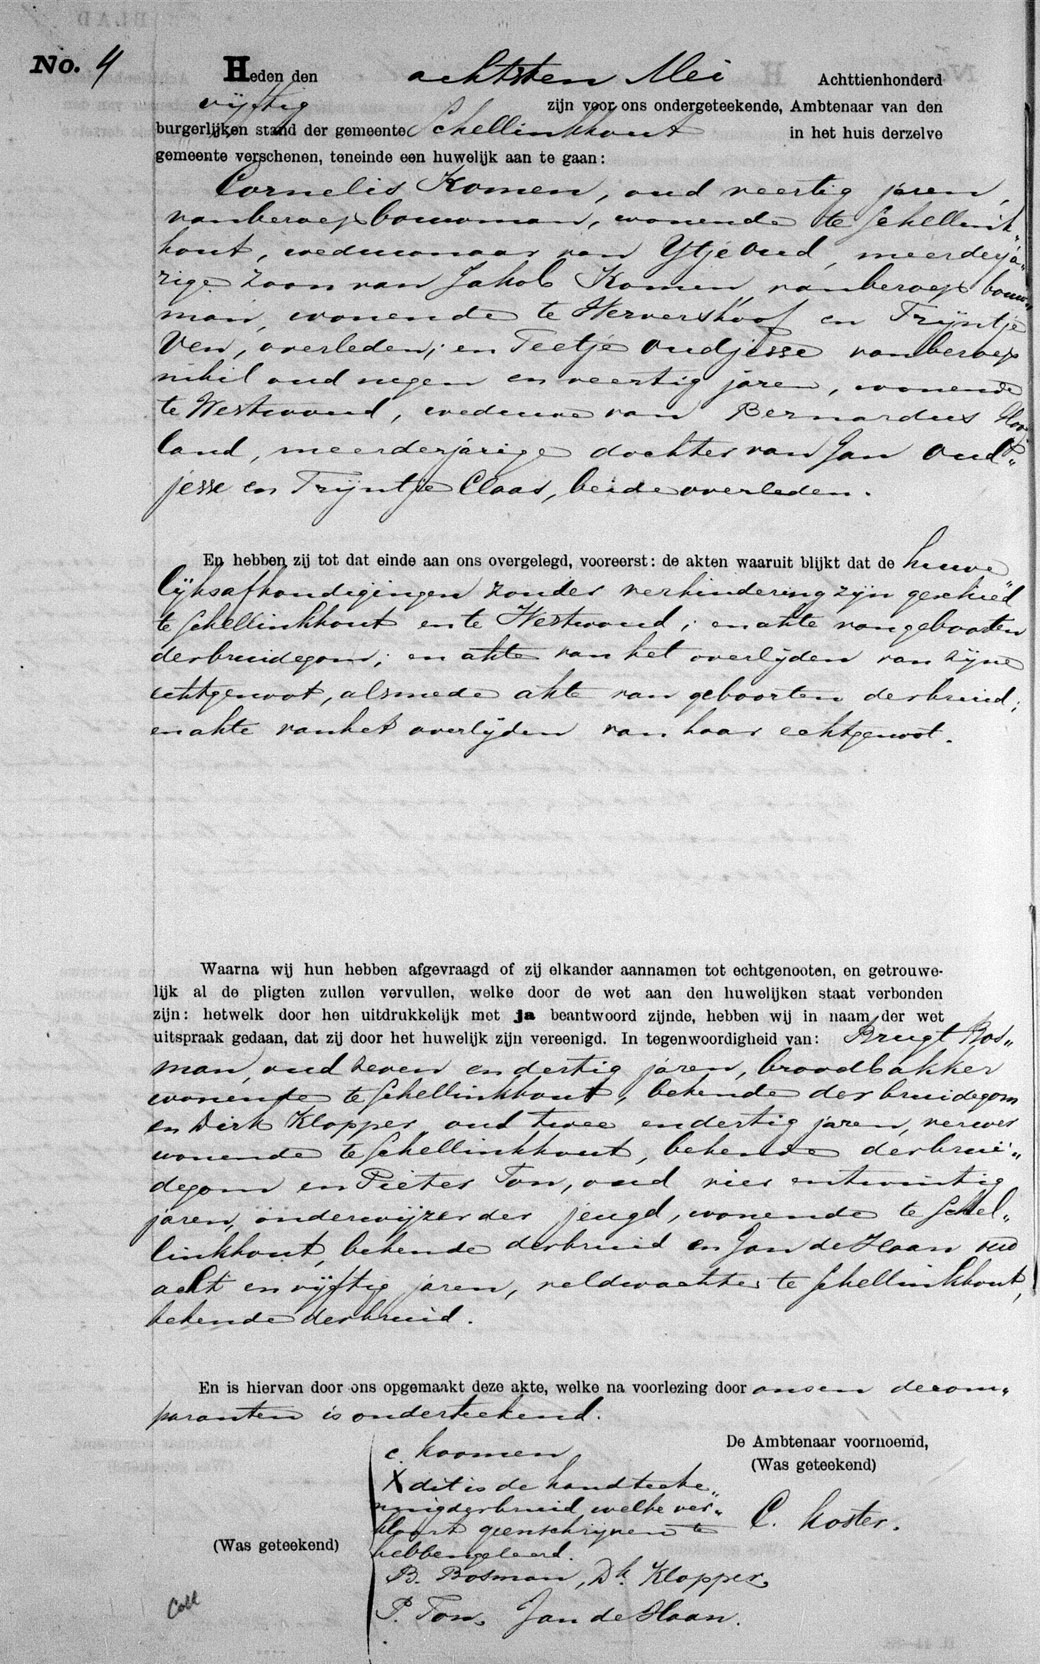 No. 4
Heden den achtsten Mei Achttienhonderd
vijftig zijn voor ons ondergeteekende, Ambtenaar van den
burgerlijken stand der gemeente Schellinkhout in het huis derzelve
gemeente verschenen, teneinde een huwelijk aan te gaan:
Cornelis Komen, oud veertig jaren,
vanberoep bouwman, wonende te Schellink„
hout, weduwnaar van Ytje Oud, meerderja„
rige zoon van Jakob Komen, vanberoep bouw„
man, wonende te Wervershoof en Trijntje
Ven, overleden; en Teetje Oudjesse vanberoep
nihil oud negen en veertig jaren, wonende
te Westwoud, weduwe van Bernardus
land, meerderjarige dochter van Jan Oud„
jesse en Trijntje Claas, beide overleden.
En hebben zij tot dat einde aan ons overgelegd, vooreerst: de akten waaruit blijkt dat de huwe
lijksafkondigingen zonder verhindering zijn geschied
te Schellinkhout en te Westwoud; en akte van geboorten
der bruidegom; en akte van het overlijden van zijne
echtgenoot, alsmede akte van geboorten der bruid;
en akte van het overlijden van haar echtgenoot.
Waarna wij hun hebben afgevraagd of zij elkander aannamen tot echtgenooten, en getrouwe-
lijk al de pligten zullen vervullen, welke door de wet aan den huwelijken staat verbonden
zijn: hetwelk door hen uitdrukkelijk met ja beantwoord zijnde, hebben wij in naam der wet
uitspraak gedaan, dat zij door het huwelijk zijn vereenigd. In tegenwoordigheid van: Brugt Bos„
man, oud zeven en dertig jaren, broodbakker
wonende te Schellinkhout, bekende der bruidegom
en Dirk Klopper oud twee en dertig jaren, verwer
wonende te Schellinkhout, bekende der brui„
degom en Pieter Ton, oud vier en twintig
jaren, onderwijzer der jeugd, wonende te Schel„
linkhout, bekende der bruid en Jan de Haan oud
acht en vijftig jaren, veldwachter te Schellinkhout,
bekende der bruid.
En is hiervan door ons opgemaakt deze akte, welke na voorlezing door ons en de com„
paranten is onderteekend.
De Ambtenaar voornoemd,
(Was geteekend)
C. Koster.
(Was geteekend)
C. Koomen
X dit is de handteeke„
ning der bruid welke ver„
klaart geen schrijven te
hebben geleerd.
B. Bosman, Dk. Klopper
P. Ton Jan de Haan.
Coll